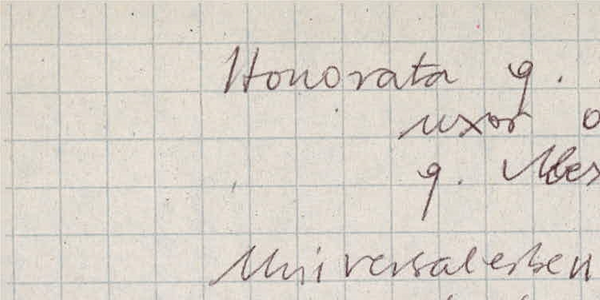 Honorata q.
uxor
q.
Universalerben